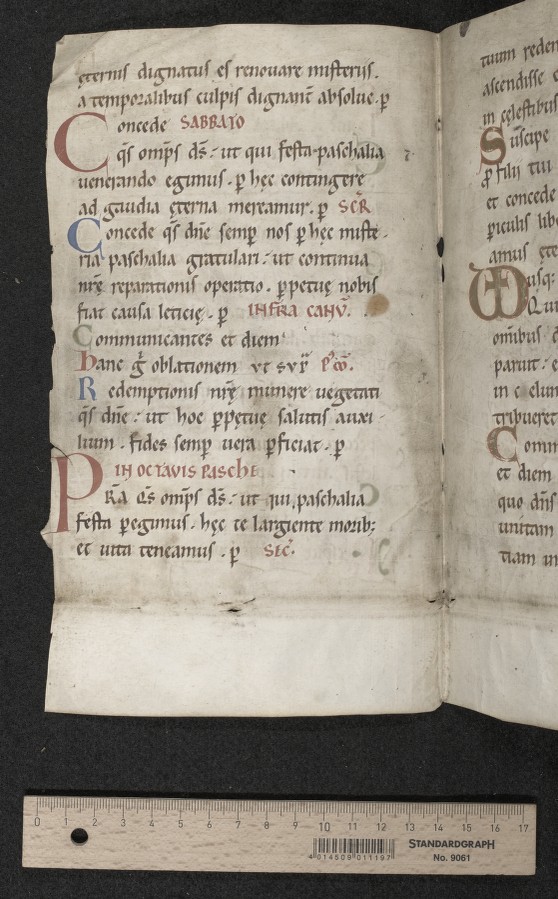 ęternis dignatus es renouare misteriis.
a temporalibus culpis dignant̄ absolue. ꝑ
Concede SABBATO
q̄s omp̄s ds̄. ut qui festa paschalia
uenerando egimus. ꝑ hęc contingere
ad gaudia ęterna mereamur. ꝑ SCR̄
Concede q̄s dn̄e semꝑ nos ꝑ hęc miste
ria paschalia gratulari. ut continua
nrę̄ reparationis operatio. ꝑpetuę nobis
fiat causa leticię. ꝑ INFRA CANŌ.
Communicantes et diem
hanc g̃ oblationem ut svp̄
Redemptionis nrę̄ munere uegetati
q̄s dn̄e. ut hoc ꝑpetuę salutis auxi
lium. fides semꝑ uera ꝑficiat. ꝑ
IN OCTAVIS PASCHE
PRA Q̄S omp̄s ds̄. ut qui paschalia
festa ꝑegimus. hęc te largiente morib;
et uita teneamus. ꝑ SEC̄.
tuum reden
ascendisse
in cęlestibus
Suscipe
ꝓ filii tui
et concede
ꝑiculis lib
amus ęte
Vsq:
Qui
omībus
paruit: e
in cęlum
tribueret
Comm
et diem
quo dn̄s
unitam
tiam
0 1 2 3 4 5 6 7 8 9 10 11 12 13 14 15 16 17
4 014509 011197
STANDARDGRAPH
No. 9061